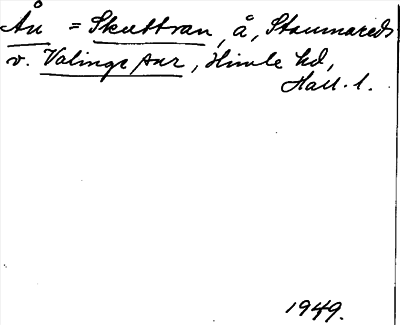 Ån = Skuttran, å, Stamnareds
v. Valinge snr, Himle hd,
Hall. l.
1949.